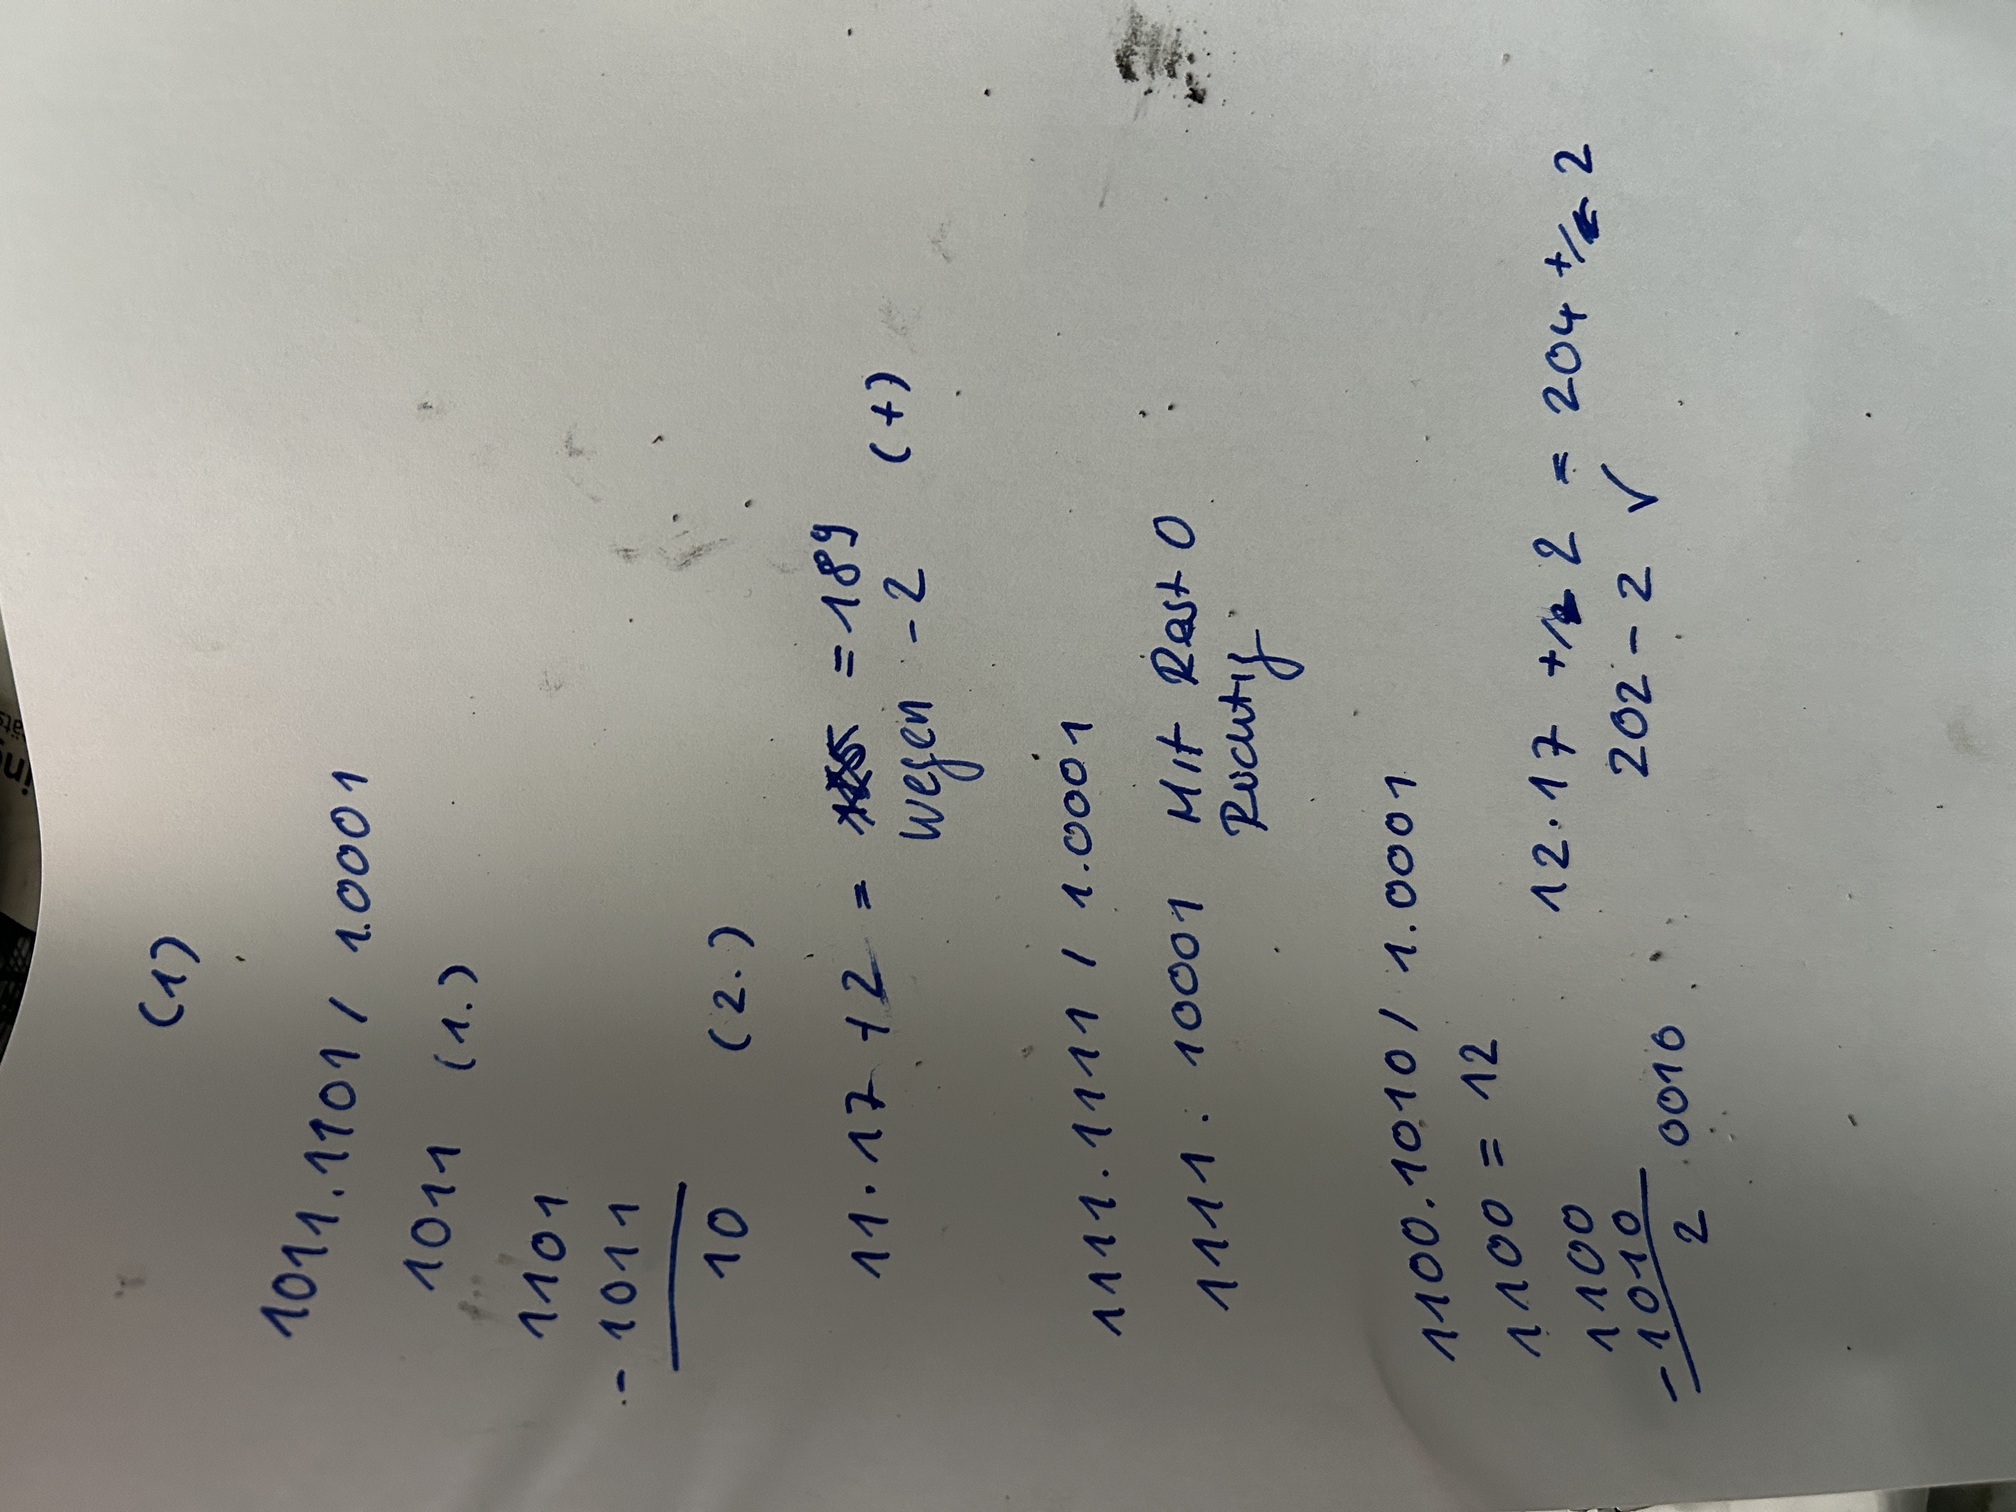 (1)
1011.1101 / 1.0001
1011 (1.)
1101
- 1011
10 (2.)
11 · 17 + 2 = = 189
wegen - 2 (+)
1111.1111 / 1.0001
1111 . 10001 Mit Rest 0
Richtig
1100.1010 / 1.0001
1100 = 12
12 · 17 +/- 2 = 204 +/- 2
1100
202 - 2 ✓
- 1010
2 0010